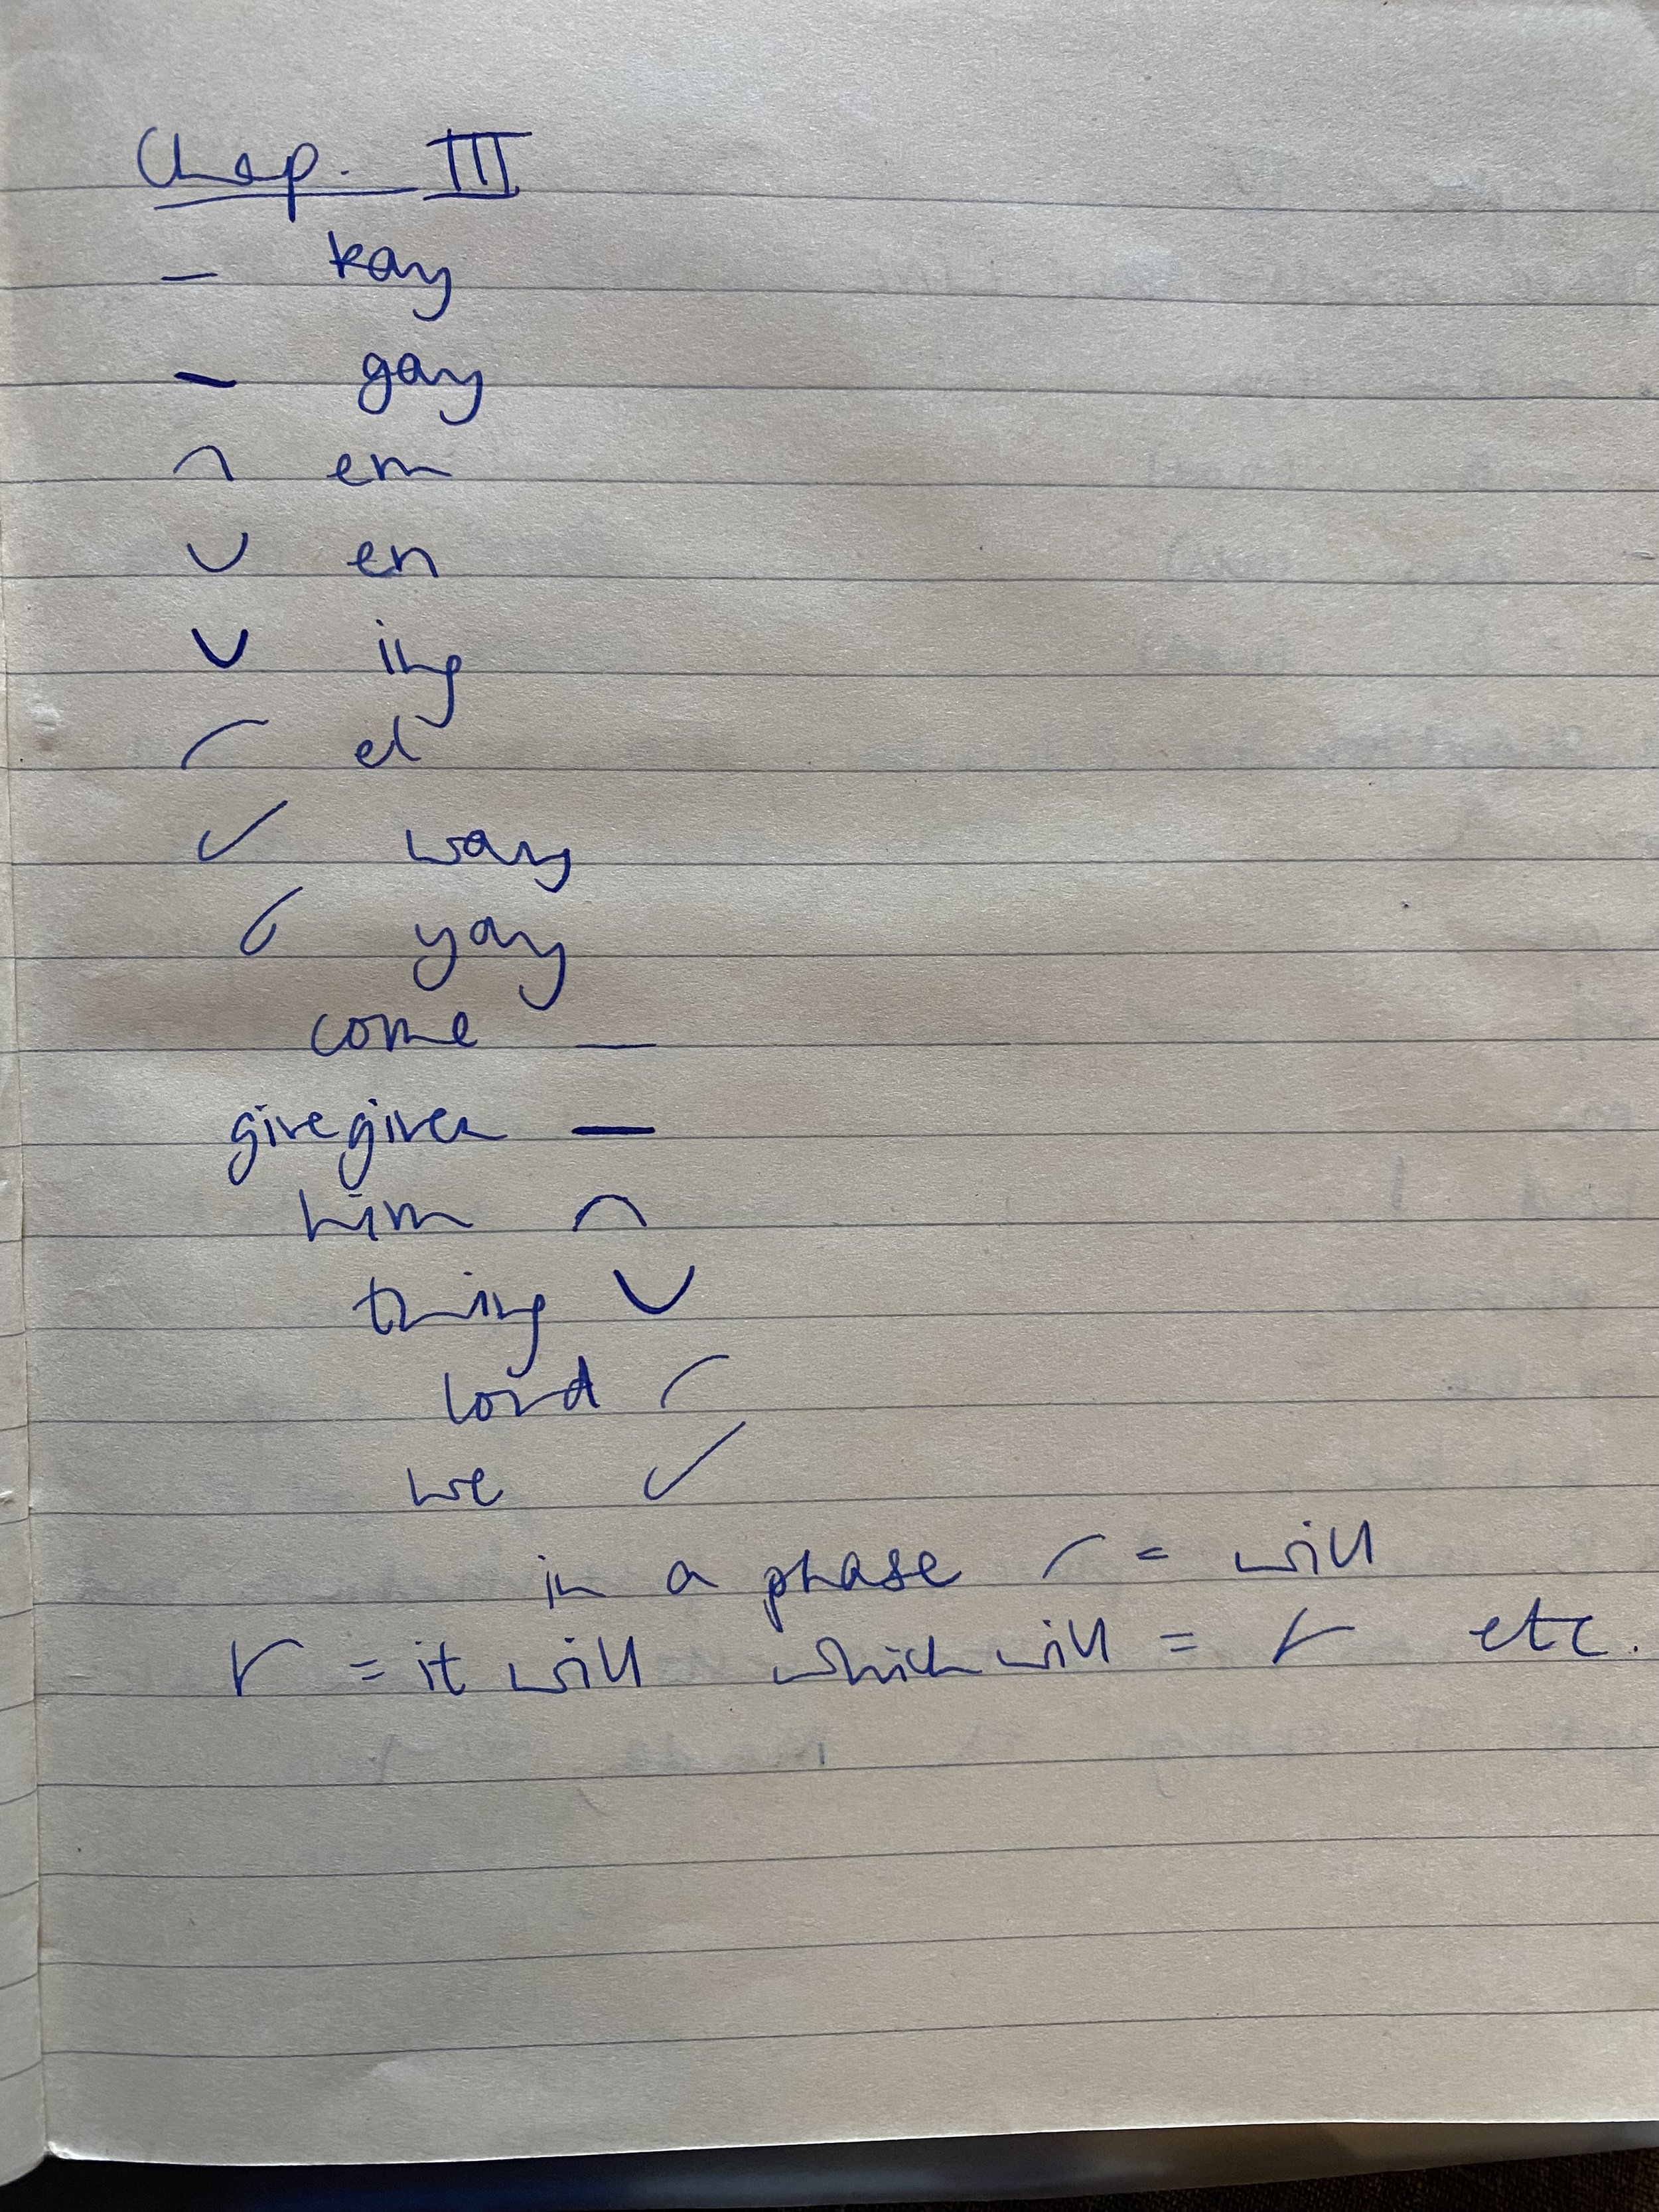 Chap. III
— kay
— gay
⌒ em
◡ en
◡ ing
⌒ el
✓ way
yay
come —
give given —
him ⌒
thing ◡
lord ⌒
we ✓
in a phase ⌒ = will
= it will which will = etc.